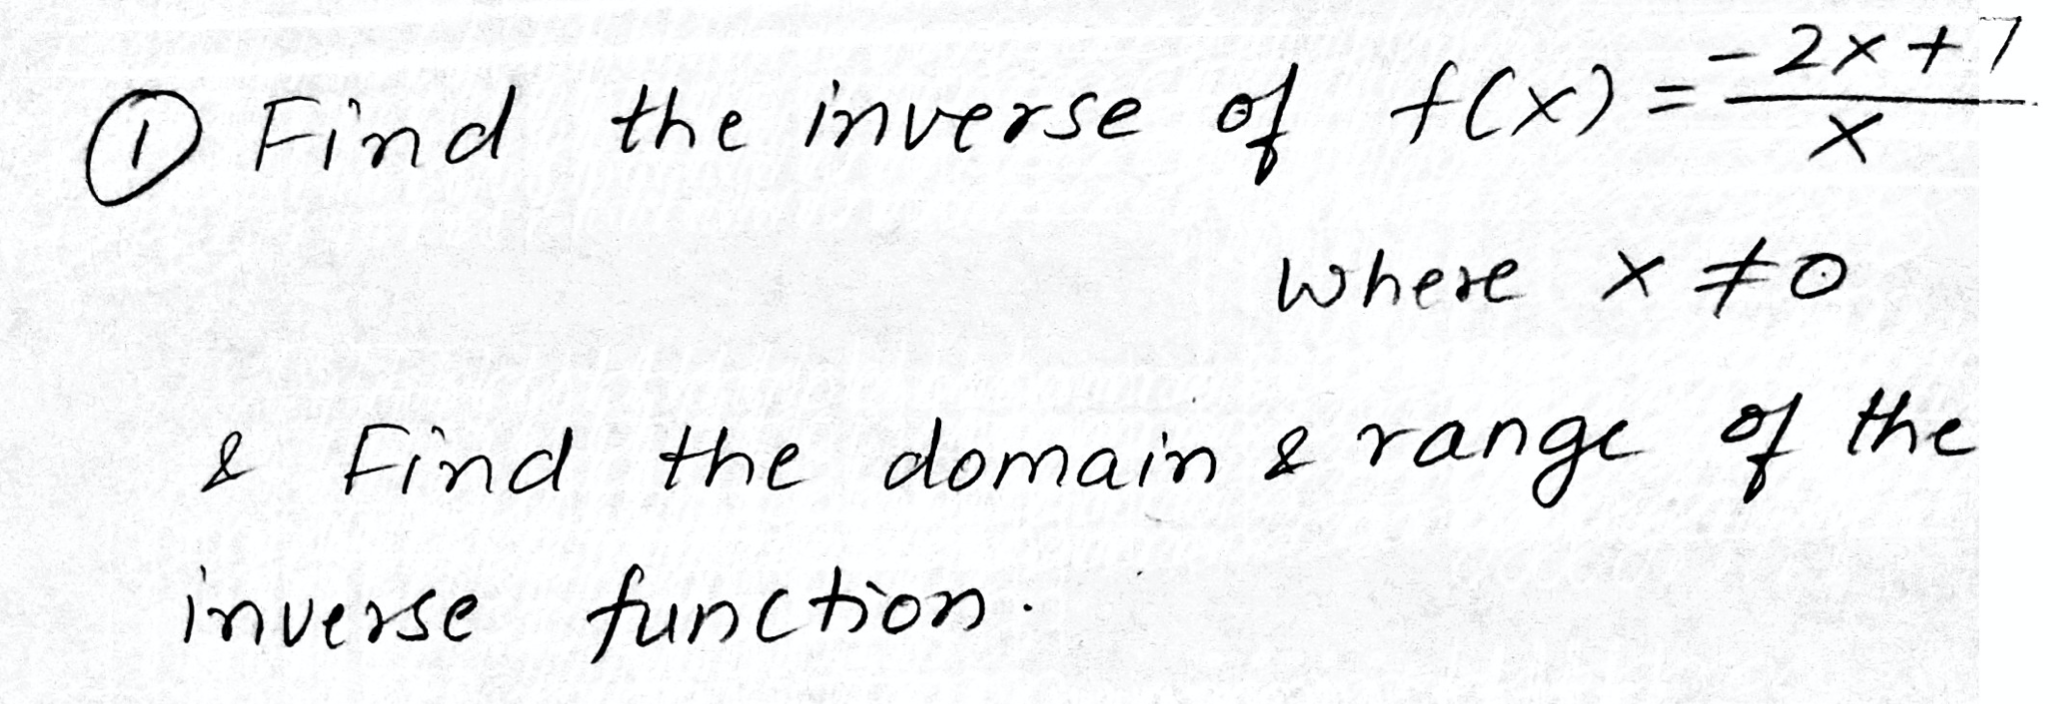 ① Find the inverse of f(x) = (-2x + 7)/x
where x ≠ 0
& Find the domain & range of the
inverse function.